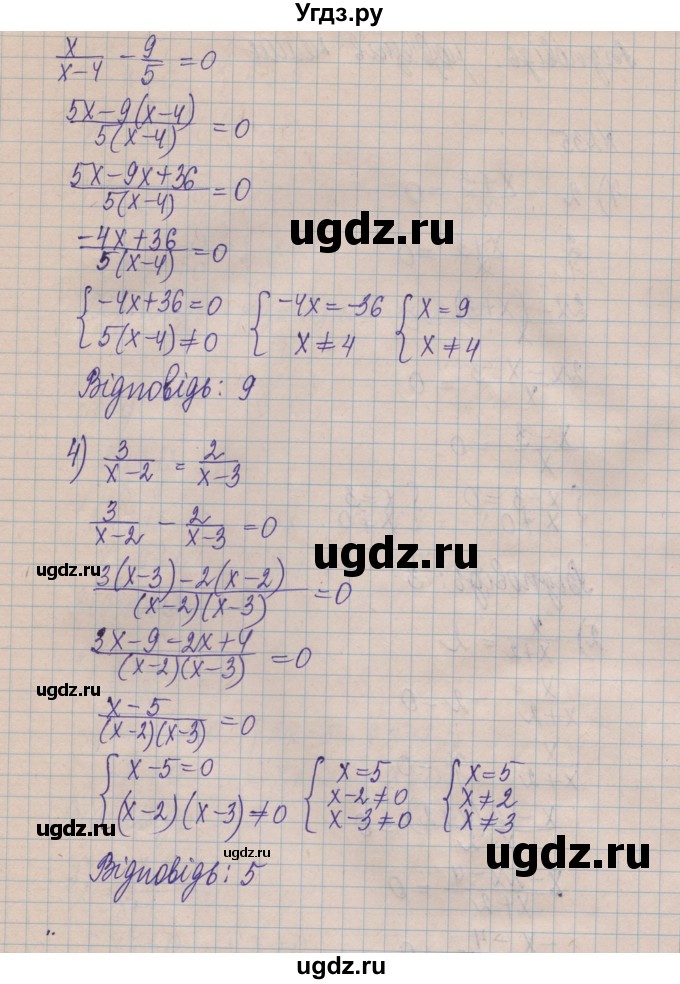 Угдз.ру
x/(x-4) - 9/5 = 0
(5x-9(x-4))/(5(x-4)) = 0
(5x-9x+36)/(5(x-4)) = 0
ugdz.ru
(-4x+36)/(5(x-4)) = 0
{ -4x+36=0 { -4x=-36 { x=9
5(x-4)≠0 x≠4 x≠4
Відповідь: 9
ugdz.ru
4) 3/(x-2) = 2/(x-3)
3/(x-2) - 2/(x-3) = 0
ugdz.ru
ugdz.ru
(3(x-3)-2(x-2))/((x-2)(x-3)) = 0
(3x-9-2x+4)/((x-2)(x-3)) = 0
ugdz.ru
(x-5)/((x-2)(x-3)) = 0
{ x-5=0 { x=5 { x=5
(x-2)(x-3)≠0 x-2≠0 x≠2
x-3≠0 x≠3
ugdz.ru
ugdz.ru
Відповідь: 5
ugdz.ru